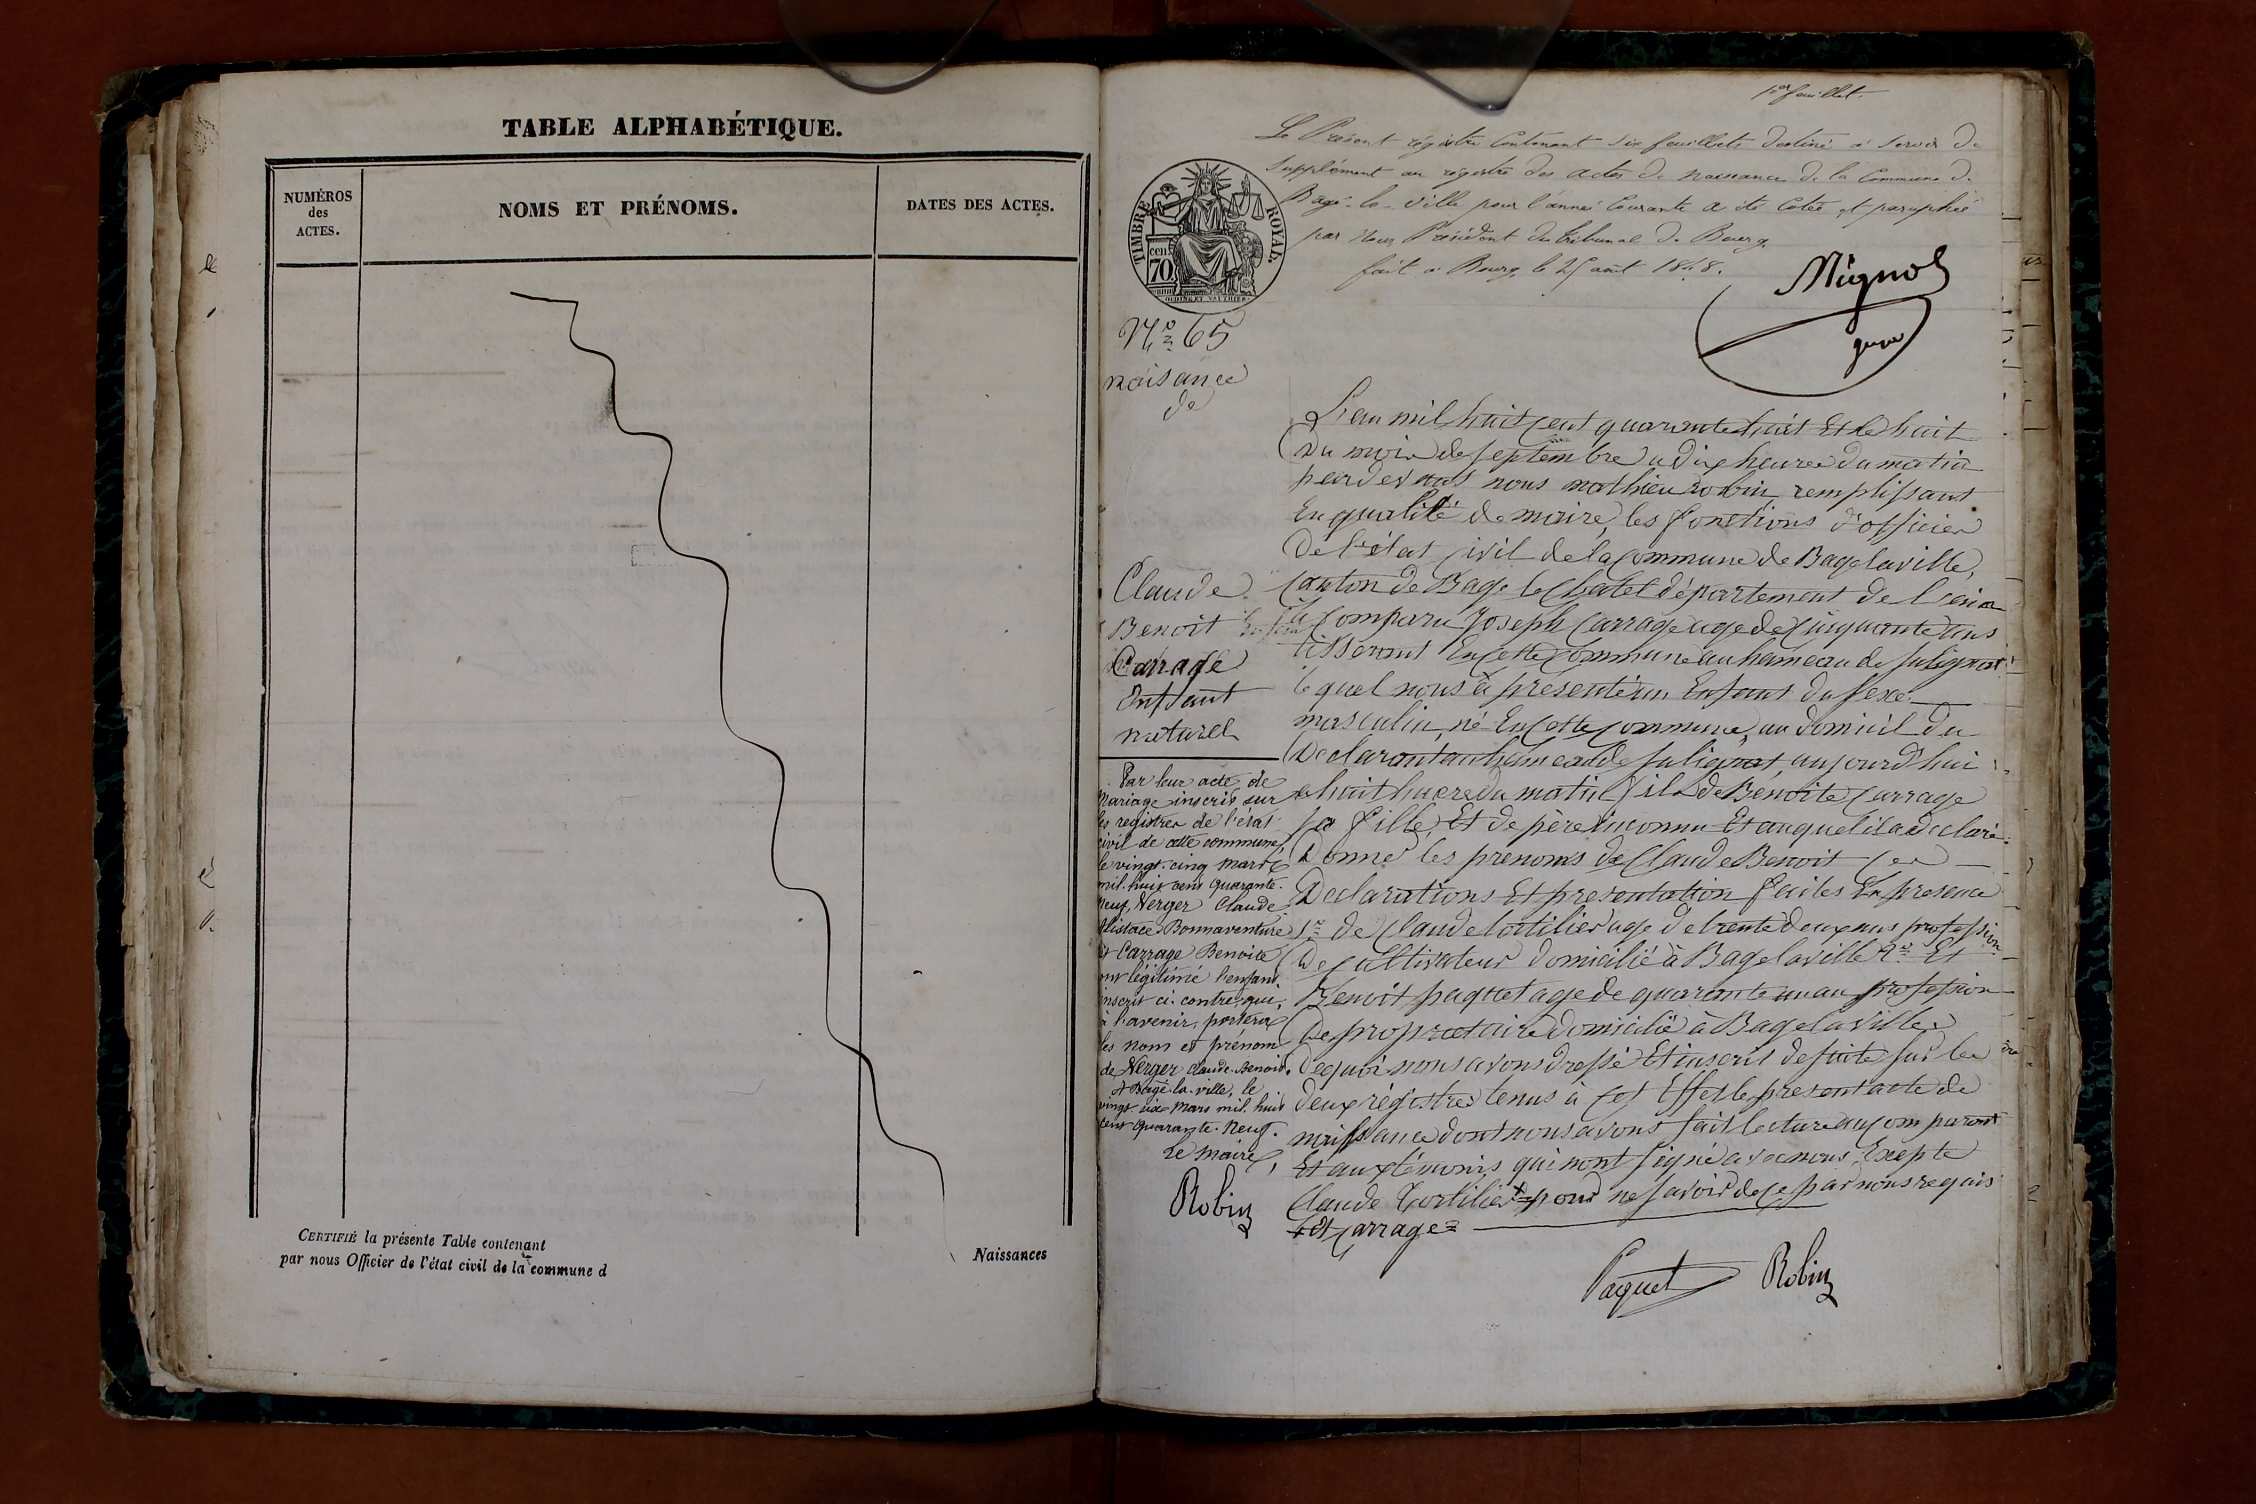 TABLE ALPHABÉTIQUE.
NUMÉROS
des
ACTES.
NOMS ET PRÉNOMS.
DATES DES ACTES.
CERTIFIÉ la présente Table contenant
par nous Officier de l'état civil de la commune d
Naissances
1er feuillet.
Le Présent régistre Contenant six feuillets destiné à servir de
supplément au régistre des actes de naissance de la Commune de
Bagé-la-Ville pour l'année Courante a été Coté et paraphé
par Nous Président du tribunal de Bourg.
fait à Bourg, le 25 août 1848.
TIMBRE ROYAL.
cen.
70.
Mignot
No 65
naisance
de
Claude
Benoit
Carrage
Enfant
naturel
L'an mil huit Cent quarante huit Et le huit
Du mois de Septembre a dix heures du matin
pardevant nous mathieu robin, remplissant
En qualité de maire, les fonctions d'officier
De l'état Civil de la Commune de Bagelaville,
Canton de Bage le Chatel département de l'ain
a Comparu Joseph Carrage age de Cinquante ans
tisserant En Cette Commune au hameau de Sulignat
lequel nous à presenté un Enfant du Sexe
masculin, né En Cette Commune, au domicil du
Declarant au hameau de Sulignat, aujourd'hui
a huit huere du matin fils de Benoite Carrage
Sa fille, Et de père inconnu Et auquel il a declaré
Donné les prenoms de Claude Benoit Ces
Declarations Et presentation faites En presence
1o de Claude tortilier age de trente deux ans profession
de Cultivateur domicilié à Bagelaville 2o Et
Benoit paquet age de quarante un an profession
De proprietaire domicilié à Bagelaville
Dequoi nous avons dressé Et inscrit de suite sur les
deux régistres tenus à Cet Effet le present acte de
naissance dont nous avons fait lecture au Comparant
Et aux témoins qui nont signé avec nous Exepte
Claude Tortilier + pour ne savoir de ce par nous requis
+ Et Carrage =
Par leur acte de
Mariage inscrit sur
les registres de l'état
civil de cette commune,
le vingt-cinq Mars
mil-huit cent quarante-
neuf, Verger Claude
Bonnaventure
et Carrage Benoite
ont légitimé l'enfant
inscrit ci-contre, qui,
à l'avenir, portera
les nom et prénom
de Verger claude-Benoit.
A Bagé-la-ville, le
vingt six Mars mil-huit
cent quarante-neuf.
Le Maire,
Robin
Paquet
Robin